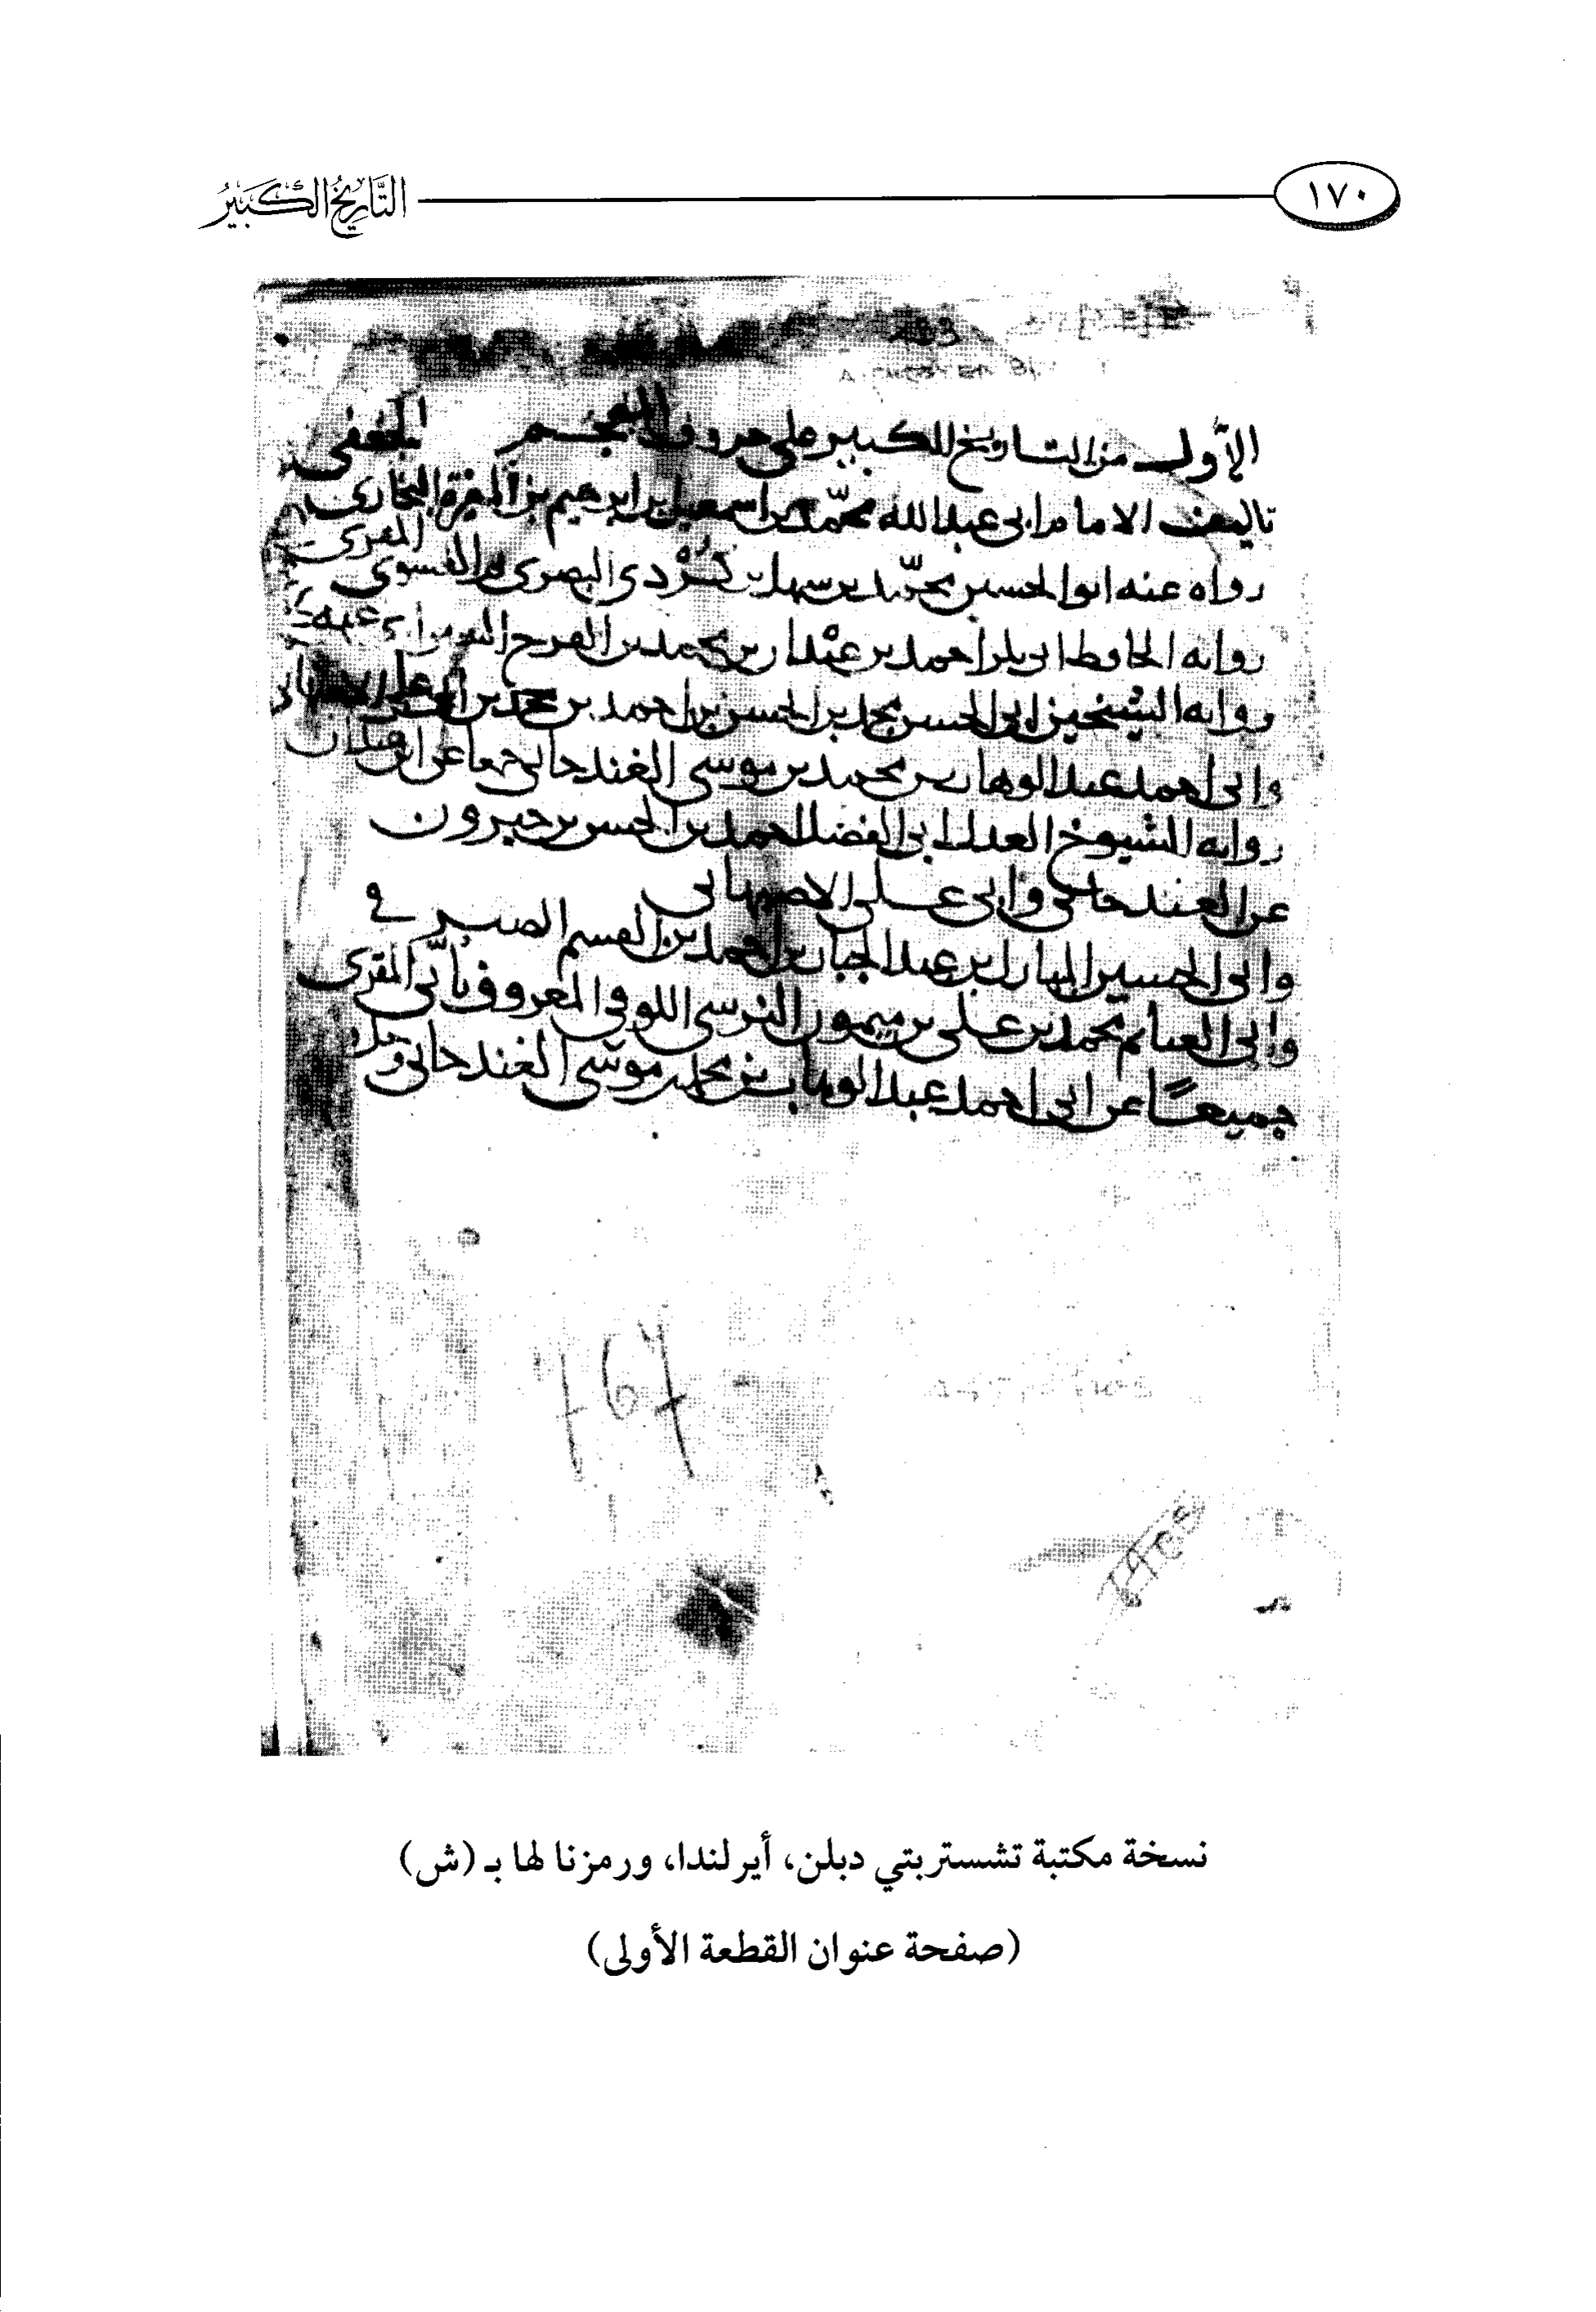 ١٧٠
التَّارِيخُ الكَبِيرُ
الأول من التاريخ الكبير على حروف المعجم
الجعفي
تاليف الامام ابى عبدالله محمّد بن اسمعيل بن ابرهيم بن المغيرة البخارى
رواه عنه ابو الحسين محمّد بن سهل بن كُرْدى البصرى الفسوى
المقرى
روايه الحافظ ابى بكر احمد بن عَبْدان بن محمد بن الفرج عنه
روايه الشيخين ابى الحسن محمد بن الحسن بن احمد بن محمد بن
وابى احمد عبد الوهاب بن محمد بن موسى الغندجانى جميعا عن ابن عبدان
روايه الشيوخ العدل ابى الفضل احمد بن الحسن بن خيرون
عن الغندجانى وابى على الاصبهانى
وابى الحسين المبارك بن عبد الجبار بن احمد بن القسم الصيرفى
وابى الغنائم محمد بن على بن ميمون النرسى الكوفى المعروف بأُبَىّ المقرى
جميعًا عن ابى احمد عبد الوهاب بن محمد بن موسى الغندجانى وحده
نسخة مكتبة تشستربتي دبلن، أيرلندا، ورمزنا لها بـ (ش)
(صفحة عنوان القطعة الأولى)